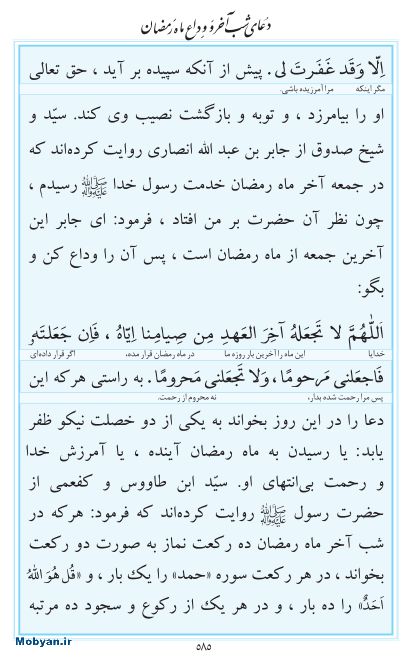 دعای شب آخر و وداع ماه رمضان
اِلّا وَقَد غَفَرتَ لی. پیش از آنکه سپیده بر آید ، حق تعالی
مگر اینکه مرا آمرزیده باشی.
او را بیامرزد ، و توبه و بازگشت نصیب وی کند. سیّد و
شیخ صدوق از جابر بن عبد الله انصاری روایت کرده‌اند که
در جمعه آخر ماه رمضان خدمت رسول خدا ﷺ رسیدم ،
چون نظر آن حضرت بر من افتاد ، فرمود: ای جابر این
آخرین جمعه از ماه رمضان است ، پس آن را وداع کن و
بگو:
اَللّٰهُمَّ لا تَجعَلهُ آخِرَ العَهدِ مِن صِیامِنا اِیّاهُ ، فَاِن جَعَلتَهُ
خدایا این ماه را آخرین بار روزه ما در ماه رمضان قرار مده، اگر قرار داده‌ای
فَاجعَلنی مَرحومًا ، وَلا تَجعَلنی مَحرومًا. به راستی هرکه این
پس مرا رحمت شده بدار، نه محروم از رحمت.
دعا را در این روز بخواند به یکی از دو خصلت نیکو ظفر
یابد: یا رسیدن به ماه رمضان آینده ، یا آمرزش خدا
و رحمت بی‌انتهای او. سیّد ابن طاووس و کفعمی از
حضرت رسول ﷺ روایت کرده‌اند که فرمود: هرکه در
شب آخر ماه رمضان ده رکعت نماز به صورت دو رکعت
بخواند ، در هر رکعت سوره «حمد» را یک بار ، و «قُل هُوَ اللهُ
اَحَدٌ» را ده بار ، و در هر یک از رکوع و سجود ده مرتبه
Mobyan.ir
۵۸۵